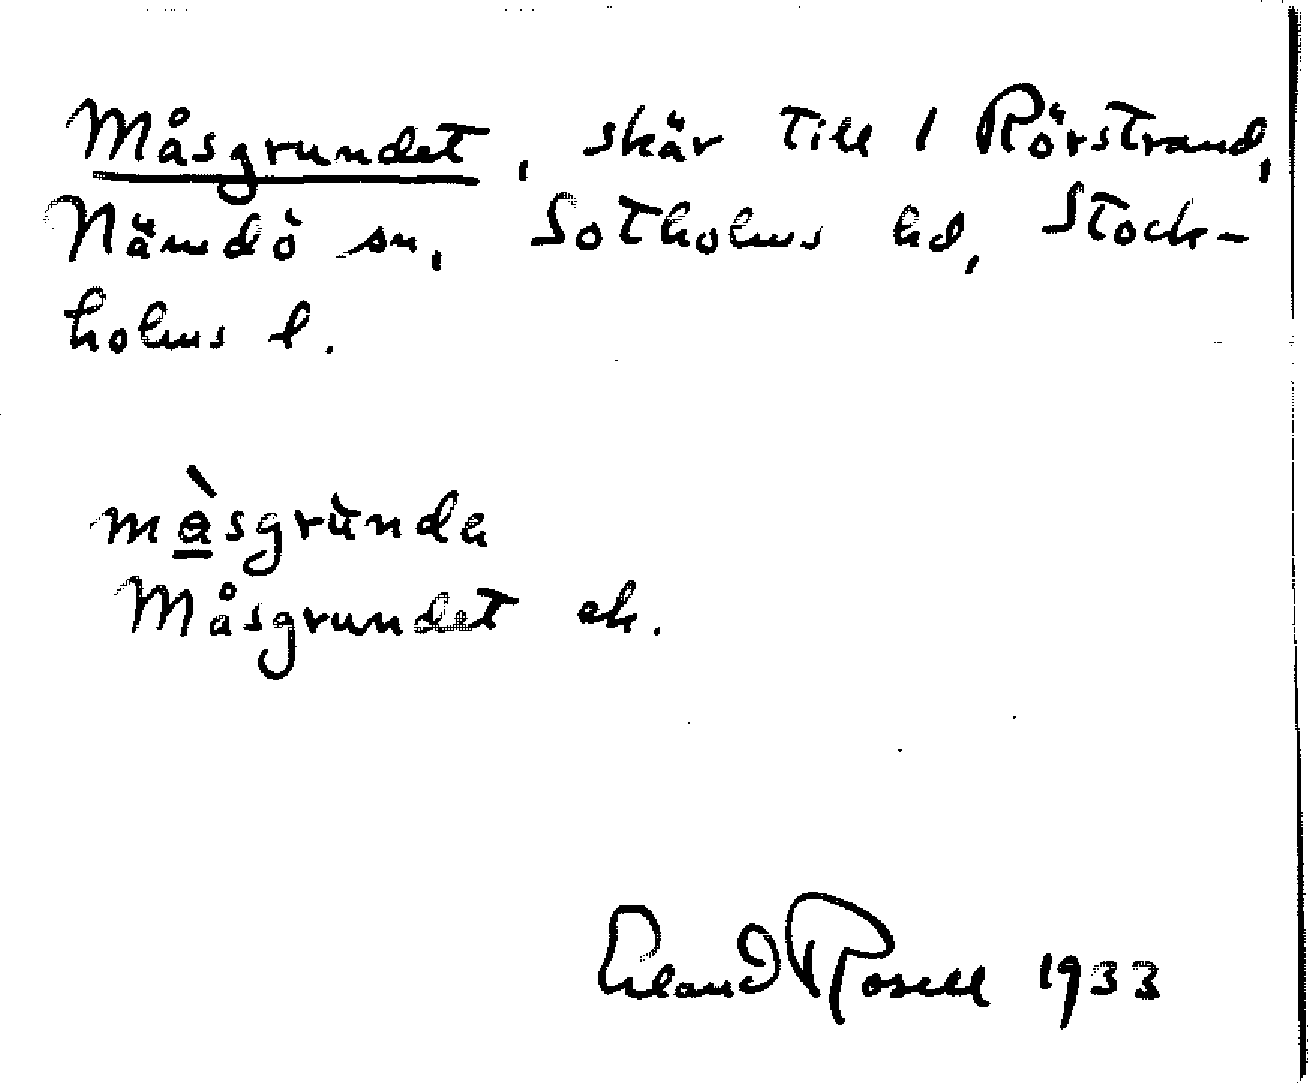 Måsgrundet, skär till 1 Rörstrand,
Nämdö sn, Sotholms hd, Stock-
holms l.
mà̲sgrùnda
Måsgrundet ek.
Erland Rosell 1933